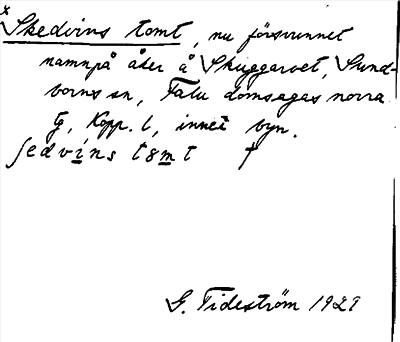 x
Skedvins tomt, nu försvunnet
namn på åker å Skuggarvet, Sund-
borns sn, Falu domsagas norra
tg, Kopp. l, innet byn.
ʃedvins tomt †
G. Tideström 1929